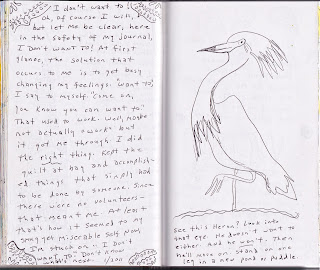 I don't want to!
Oh, of course I will,
but let me be clear, here
in the safety of my journal,
I Don't WANT TO! At first
glance, the solution that
occurs to me is to get busy
changing my feelings. "Want TO,"
I say to myself. "Come on,
you know you can want to."
That used to work. Well, maybe
not actually work but
it got me through. I did
the right thing. Kept the
guilt at bay and accomplish-
ed things that simply had
to be done by someone. Since
there were no volunteers—
that meant me. At least
that's how it seemed to my
young yet miserable Self. Now
I'm stuck at - I Don't
Want To! Don't know
what's next.
See this Heron? Look into
that eye. He doesn't want to
either. And he won't. Then
he'll move on, stand on one
leg in a new pond or puddle.